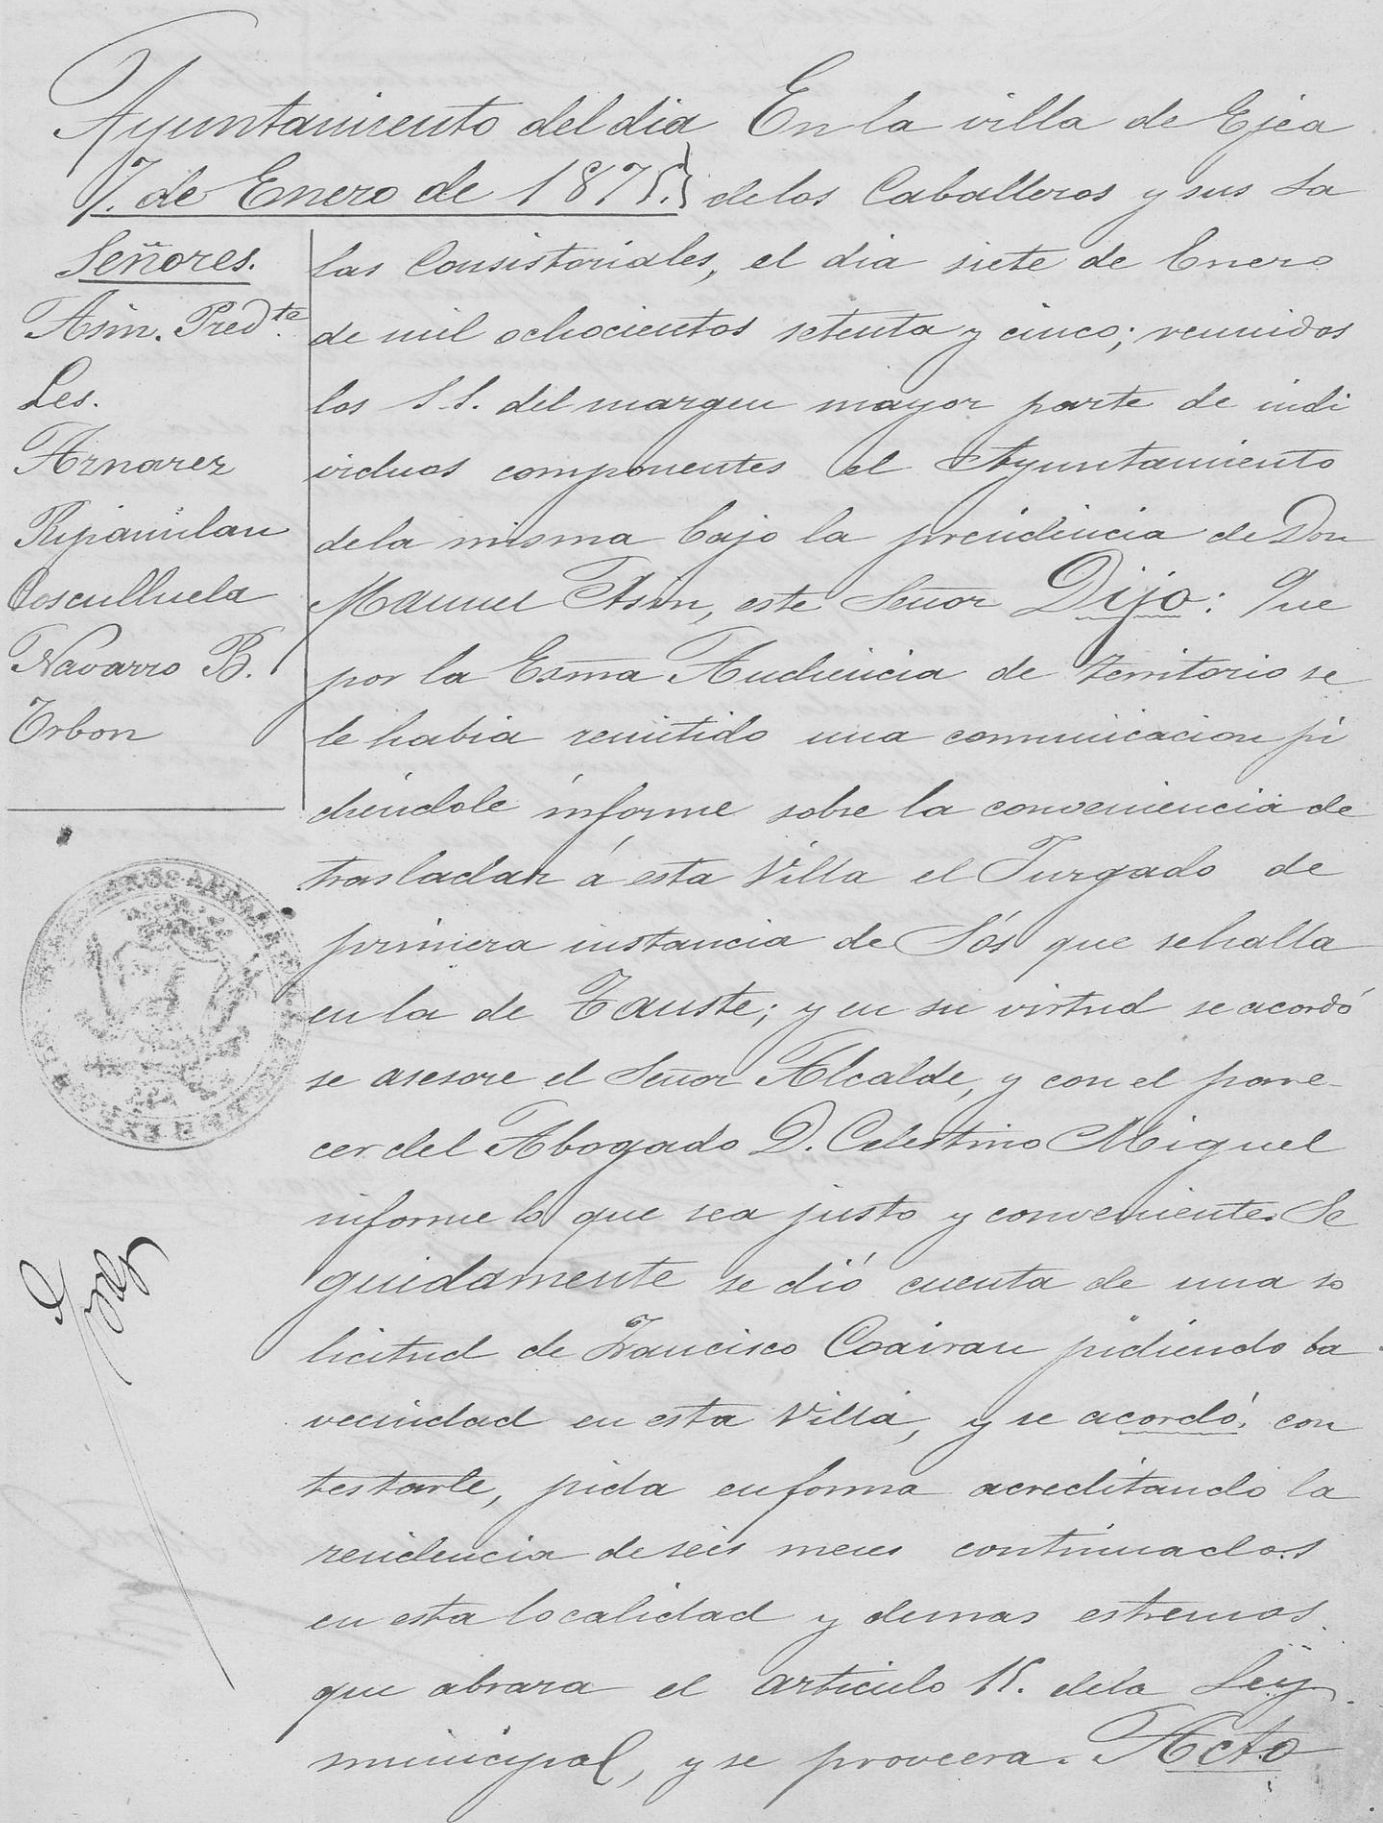 Ayuntamiento del dia
7. de Enero de 1875.
Señores.
Asin. Pred.te
Les.
Arnarez
Ripamilan
Cosculluela
Navarro B.
Orbon
En la villa de Ejea
de los Caballeros y sus Sa
las Consistoriales, el dia siete de Enero
de mil ochocientos setenta y cinco; reunidos
los S.S. del margen mayor parte de indi
viduos componentes el Ayuntamiento
dela misma bajo la presidencia de Don
Manuel Asin, este Señor Dijo: Que
por la Esma Audiencia de territorio se
le habia remitido una comunicacion pi
diéndole informe sobre la conveniencia de
trasladar á esta Villa el Jurgado de
primera instancia de Sós que se halla
en la de Tauste; y en su virtud se acordó
se asesore el Señor Alcalde, y con el pare-
cer del Abogado D. Celestino Miguel
informe lo que sea justo y conveniente. Se
guidamente se dió cuenta de una so
licitud de Francisco Coairan pidiendo la
vecindad en esta Villa, y se acordó, con
testarle, pida en forma acreditando la
residencia de seis meses continuados
en esta localidad y demas estremos
que abraza el articulo 15. dela Ley
municipal, y se proveera. Acto